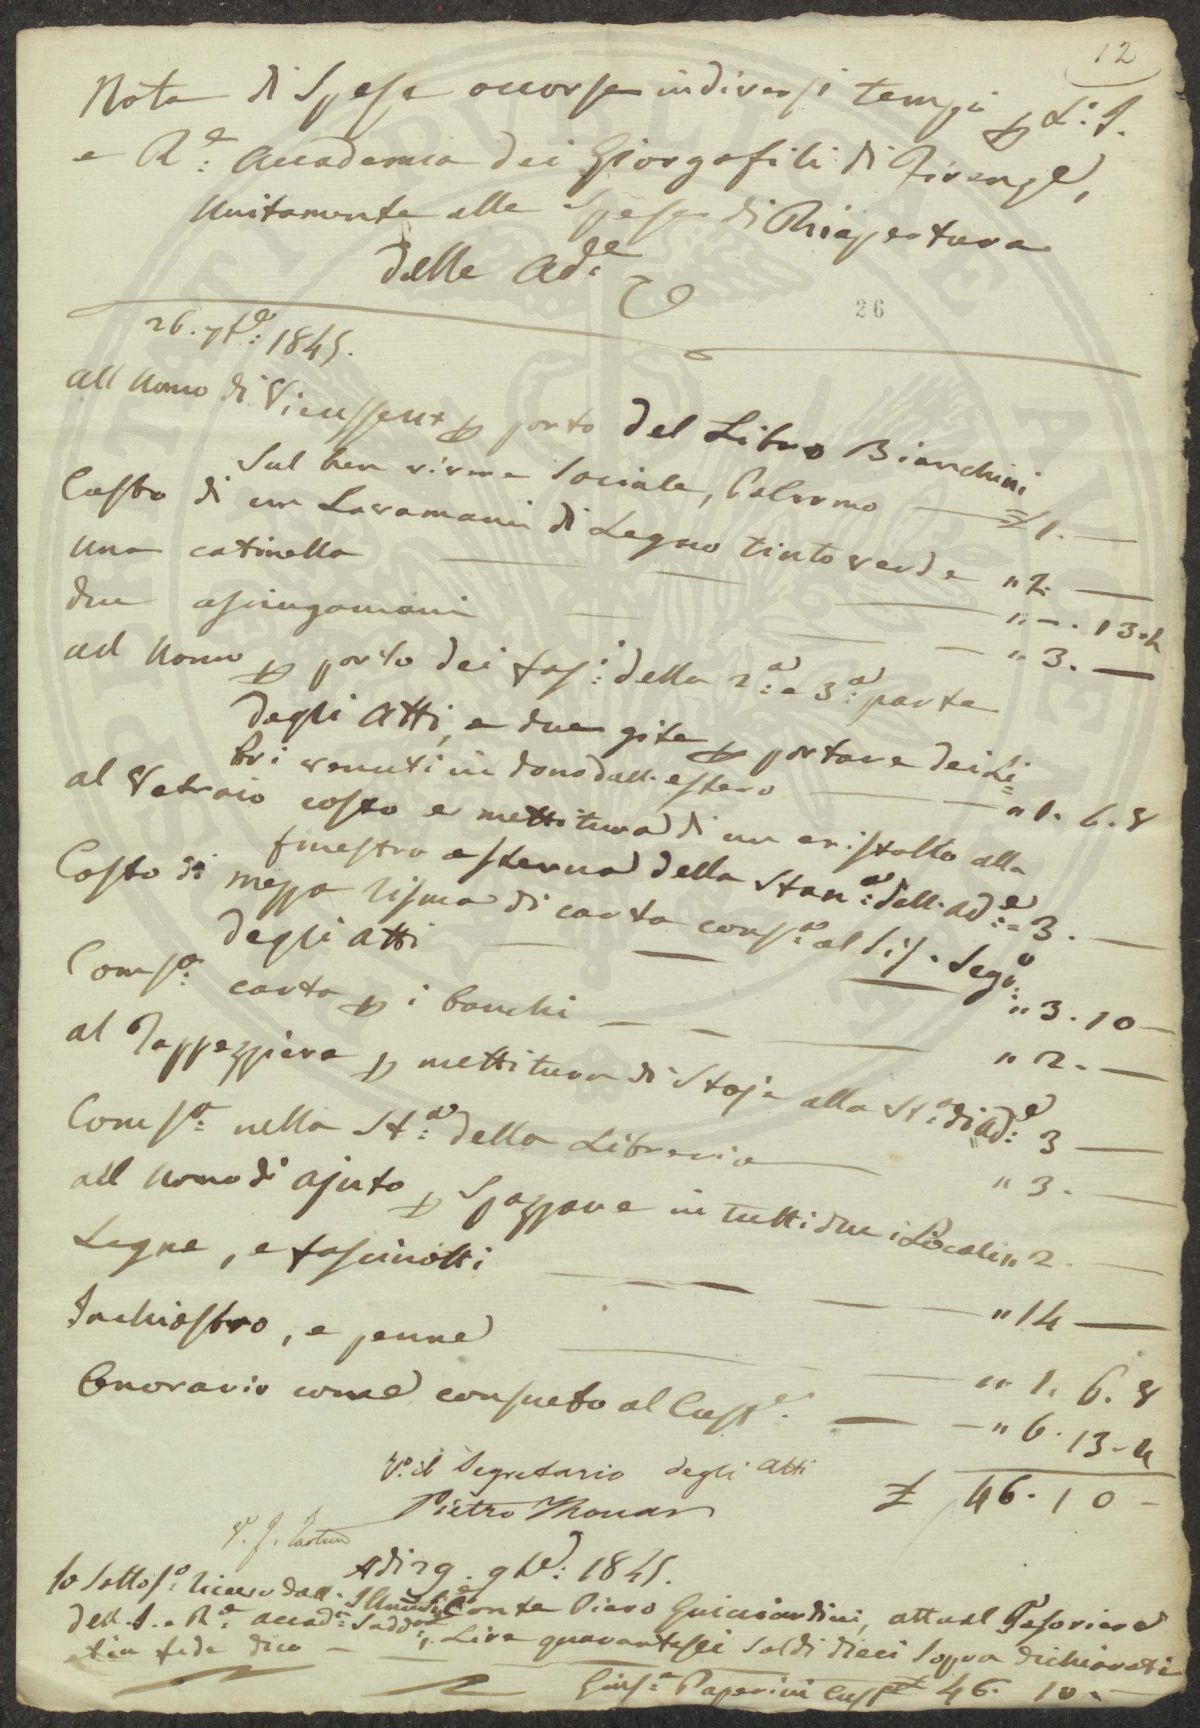 12
Nota di Spese occorse in diversi tempi p. L'I.
e R.e Accademia dei Giorgofili di Firenze,
Unitamente alle Spese di Riapertura
delle Ad.e
26
26. 7bre: 1845.
all Uomo di Vieusseux p. porto del Libro Bianchini
Sul ben vivere Sociale, Palermo — £ 1. —
Costo di un Lavamani di Legno tinto verde " 2. —
Una catinella — — — " -. 13.4
due asciugamani — — — " 3. —
ad Uomo p. porto dei fas.i della 2.a e 3.a parte
degli Atti, e due gite p. portare dei Li=
bri venuti in dono dall'estero — — " 1. 6. 8
al Vetraio costo e mettitura di un cristallo alla
finestra esterna della Stan.a dell. ad.e = 3. —
Costo di mezza risma di carta cons.a al Sig. Seg.o
degli atti — — — " 3. 10 —
Comp.a carta p. i banchi — — — " 2. —
al Tappezziere p. mettitura di Stoje alla St.a di ad.e " 3 —
Com s.a nella St.a della Libreria — " 3. —
all Uomo di ajuto p. Spazzare in tutti due i Locali " 2. —
Legne, e fascinotti — — — — " 14 —
Inchiostro, e penne — — " 1. 6. 8
Onorario come consueto al Cust.e — — " 6. 13. 4
V.o il Segretario degli Atti
£ 46. 10 —
Pietro Thouar
V.o
Adi 29. 9bre: 1845.
Io Sottos.o ricevo dall. Illmo Sig. Conte Piero Guicciardini, attual Tesoriere
dell. I. e R.e accad.a Sudd.a Lire quarantasei Soldi dieci Sopra dichiarati
et in fede dico —
Gius.e Paperini Cust.e £ 46. 10. —